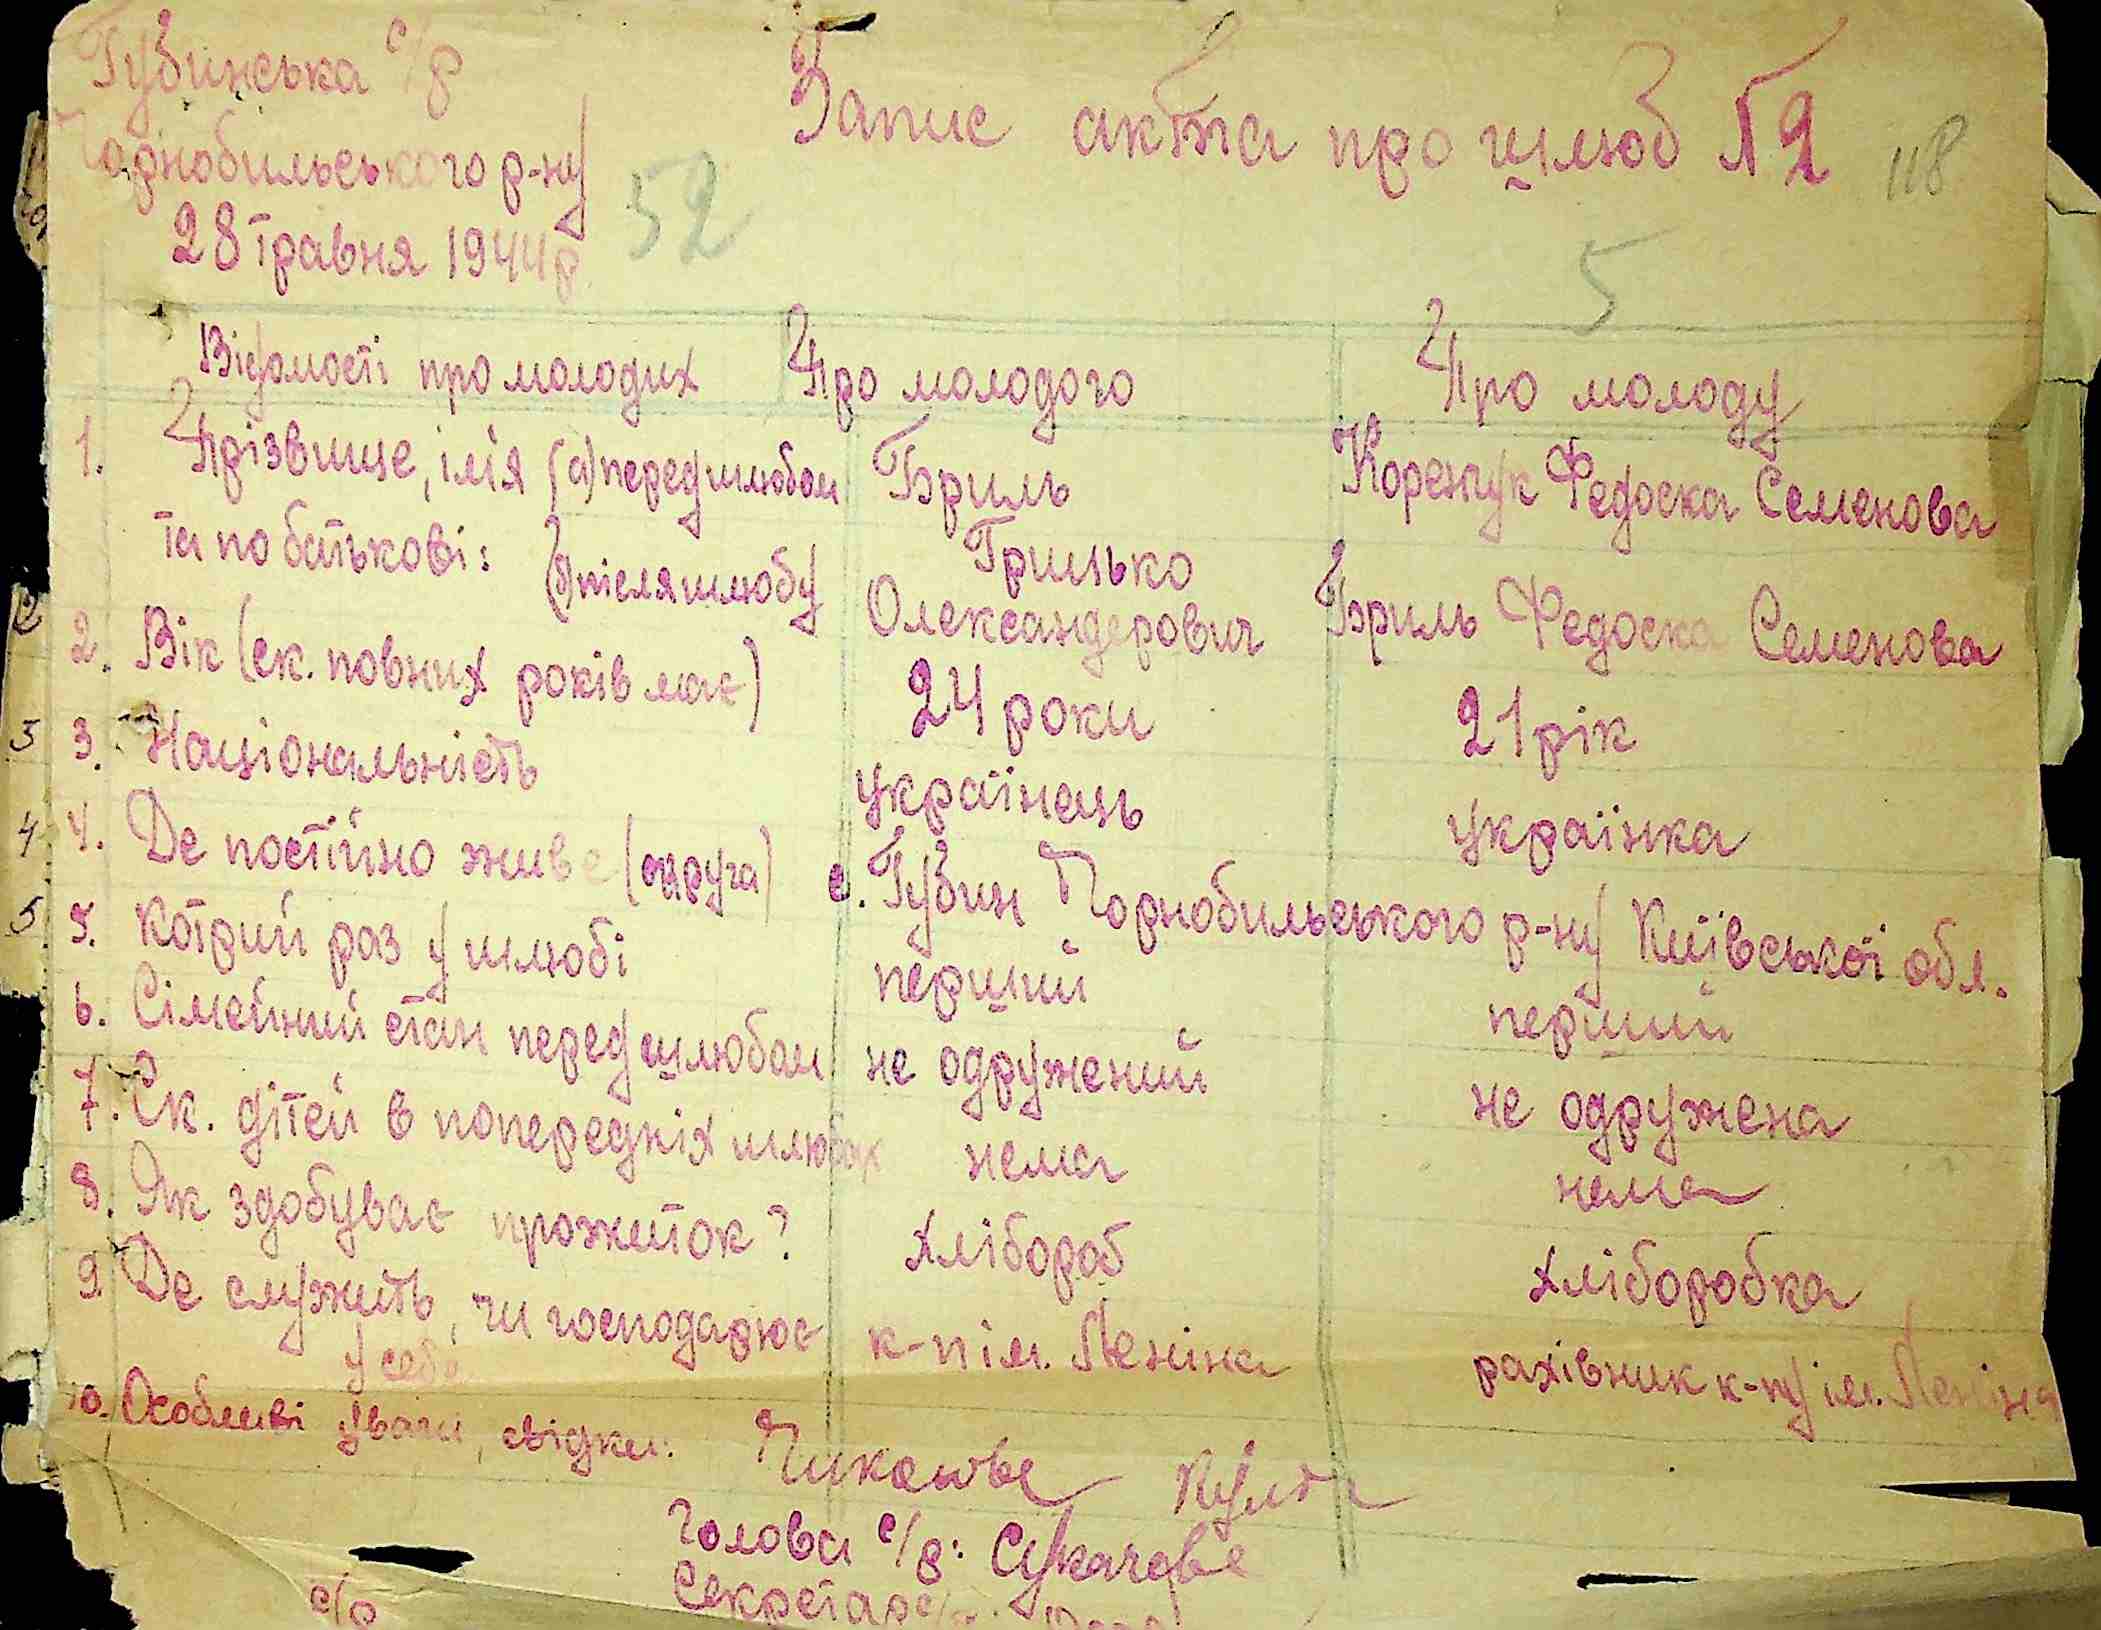 Губинська с/р
Чорнобильського р-ну
28 травня 1944р.
52
Запис акта про шлюб №2
118
5
Відомості про молодих Про молодого Про молоду
1. Прізвище, ім'я (а) перед шлюбом Бриль Коренчук Федоска Семенова
та по батькові: Грицько
(б) після шлюбу Олександерович Бриль Федоска Семенова
2. Вік (ск. повних років має) 24 роки 21 рік
3. Національність українець українка
4. Де постійно живе (округа) с. Губин Чорнобильського р-ну Київської обл.
5. Котрий раз у шлюбі перший перший
6. Сімейний стан перед шлюбом не одружений не одружена
7. Ск. дітей в попередніх шлюбах нема нема
8. Як здобуває прожиток? хлібороб хліборобка
9. Де служить, чи господарює к-п ім. Леніна рахівник к-пу ім. Леніна
у себе
10. Особливі уваги, свідки:
Голова с/р:
Секретар с/р.
с/р
3
4
5